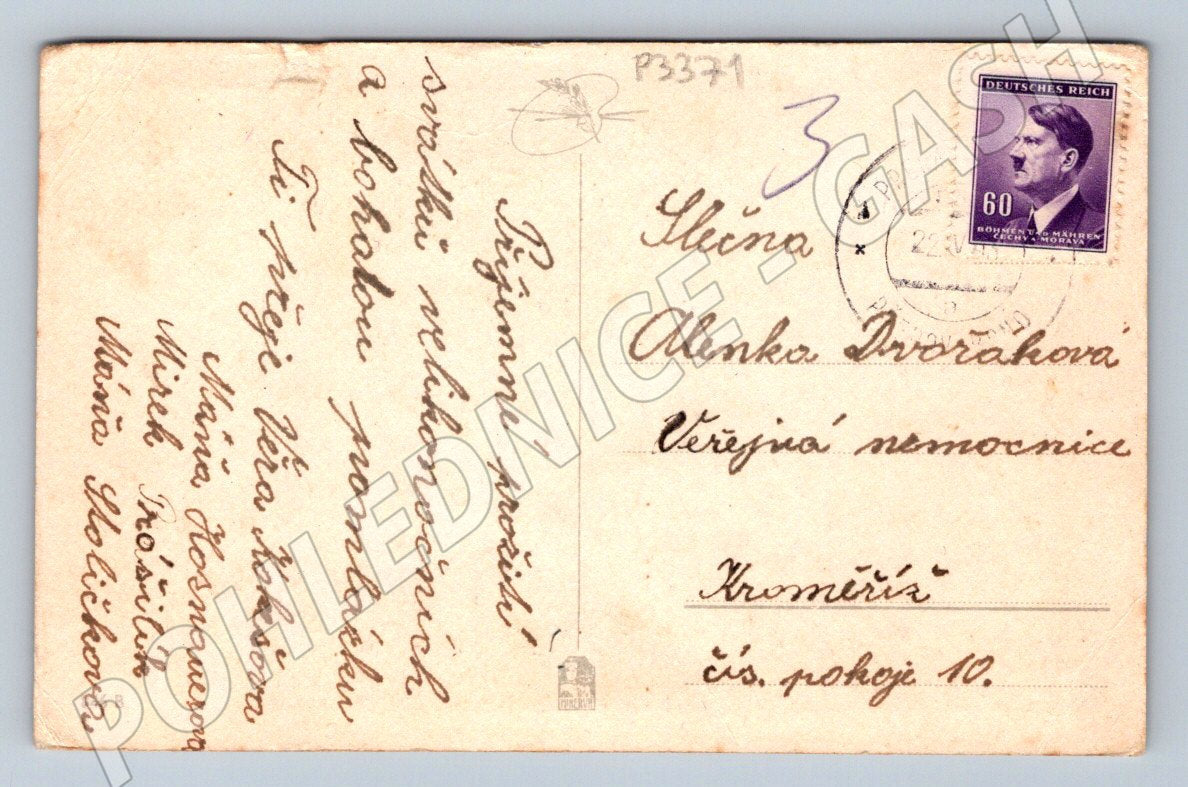 P3371
3
Příjemné prožití
svátků velikonočních
a bohatou pomlázku
Ti přeje Věra
Máňa
Mirek
Máňa Stoličková
Slečna
Alenka Dvořáková
Veřejná nemocnice
Kroměříž
čís. pokoje 10.
DEUTSCHES REICH
60
BÖHMEN UND MÄHREN
ČECHY A MORAVA
MINERVA
POHLEDNICE - GASH